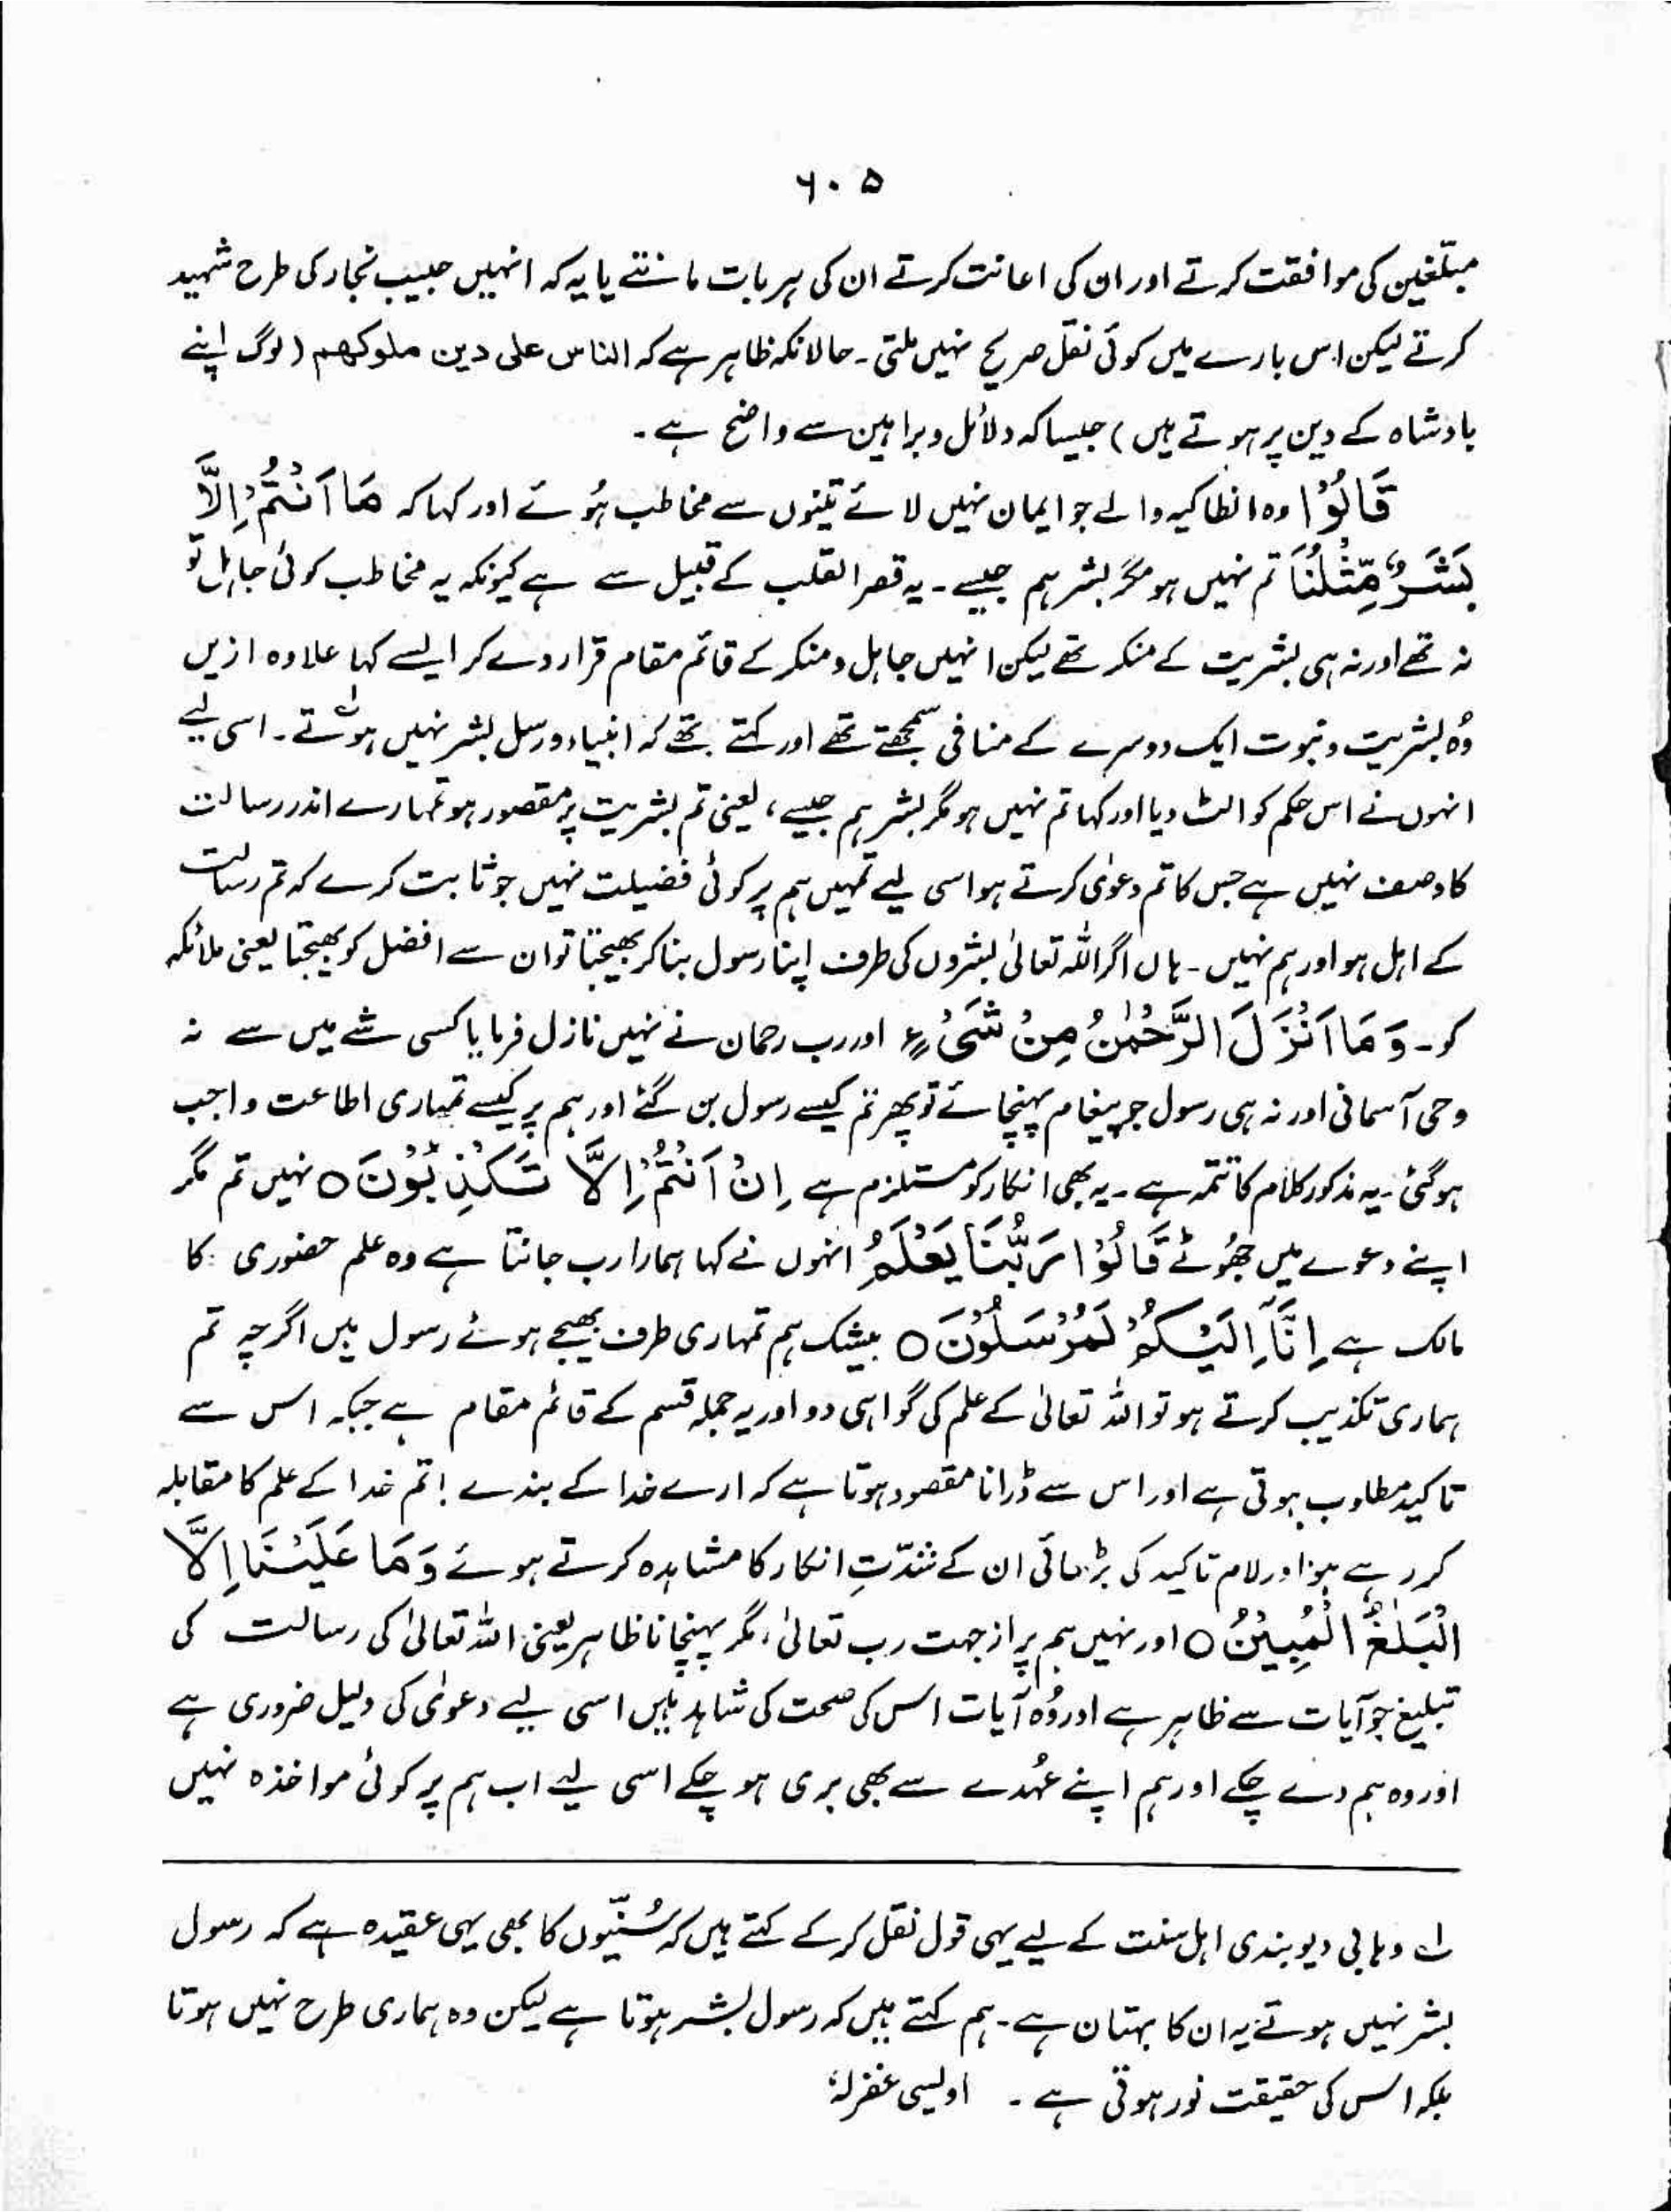 ۶۰۵
مبلّغین کی موافقت کرتے اور ان کی اعانت کرتے ان کی ہر بات مانتے یا یہ کہ انہیں حبیب نجار کی طرح شہید
کرتے لیکن اس بارے میں کوئی نقل صریح نہیں ملتی۔ حالانکہ ظاہر ہے کہ الناس علی دین ملوکھم (لوگ اپنے
بادشاہ کے دین پر ہوتے ہیں) جیسا کہ دلائل و براہین سے واضح ہے۔
قَالُوْا وہ انطاکیہ والے جو ایمان نہیں لائے تینوں سے مخاطب ہُوئے اور کہا کہ مَا اَنْتُمْ اِلَّا
بَشَرٌ مِّثْلُنَا تم نہیں ہو مگر بشر ہم جیسے۔ یہ قصر القلب کے قبیل سے ہے کیونکہ یہ مخاطب کوئی جاہل تو
نہ تھے اور نہ ہی بشریت کے منکر تھے لیکن انہیں جاہل و منکر کے قائم مقام قرار دے کر ایسے کہا علاوہ ازیں
وُہ بشریت و نبوت ایک دوسرے کے منافی سمجھتے تھے اور کہتے تھے کہ انبیاء و رسل بشر نہیں ہوتے۔ لہ اسی لیے
انہوں نے اس حکم کو الٹ دیا اور کہا تم نہیں ہو مگر بشر ہم جیسے، یعنی تم بشریت پر مقصور ہو تمہارے اندر رسالت
کا وصف نہیں ہے جس کا تم دعوٰی کرتے ہو اسی لیے تمہیں ہم پر کوئی فضیلت نہیں جو ثابت کرے کہ تم رسالت
کے اہل ہو اور ہم نہیں۔ ہاں اگر اللہ تعالیٰ بشروں کی طرف اپنا رسول بنا کر بھیجتا تو ان سے افضل کو بھیجتا یعنی ملائکہ
کو۔ وَمَا اَنْزَلَ الرَّحْمٰنُ مِنْ شَیْءٍ اور رب رحمان نے نہیں نازل فرمایا کسی شے میں سے نہ
وحی آسمانی اور نہ ہی رسول جو پیغام پہنچائے تو پھر تم کیسے رسول بن گئے اور ہم پر کیسے تمہاری اطاعت واجب
ہوگئی۔ یہ مذکور کلام کا تتمّہ ہے۔ یہ بھی انکار کو مستلزم ہے اِنْ اَنْتُمْ اِلَّا تَکْذِبُوْنَ ○ نہیں تم مگر
اپنے دعوے میں جھُوٹے قَالُوْا رَبُّنَا یَعْلَمُ انہوں نے کہا ہمارا رب جانتا ہے وہ علم حضوری کا
مالک ہے اِنَّآ اِلَیْکُمْ لَمُرْسَلُوْنَ ○ بیشک ہم تمہاری طرف بھیجے ہوئے رسول ہیں اگرچہ تم
ہماری تکذیب کرتے ہو تو اللہ تعالیٰ کے علم کی گواہی دو اور یہ جملہ قسم کے قائم مقام ہے جبکہ اس سے
تاکید مطلوب ہوتی ہے اور اس سے ڈرانا مقصود ہوتا ہے کہ ارے خدا کے بندے! تم خدا کے علم کا مقابلہ
کر رہے ہو اور لام تاکید کی بڑھائی ان کے شدّتِ انکار کا مشاہدہ کرتے ہوئے وَمَا عَلَیْنَا اِلَّا
الْبَلٰغُ الْمُبِیْنُ ○ اور نہیں ہم پر از جہت رب تعالیٰ، مگر پہنچانا ظاہر یعنی اللہ تعالیٰ کی رسالت کی
تبلیغ جو آیات سے ظاہر ہے اور وُہ آیات اس کی صحت کی شاہد ہیں اسی لیے دعوٰی کی دلیل ضروری ہے
اور وہ ہم دے چکے اور ہم اپنے عُہدے سے بھی بری ہو چکے اسی لیے اب ہم پر کوئی مواخذہ نہیں
لہ وہابی دیوبندی اہل سنت کے لیے یہی قول نقل کر کے کہتے ہیں کہ سُنّیوں کا بھی یہی عقیدہ ہے کہ رسول
بشر نہیں ہوتے یہ ان کا بہتان ہے۔ ہم کہتے ہیں کہ رسول بشر ہوتا ہے لیکن وہ ہماری طرح نہیں ہوتا
بلکہ اس کی حقیقت نور ہوتی ہے۔ اویسی غفرلہٗ